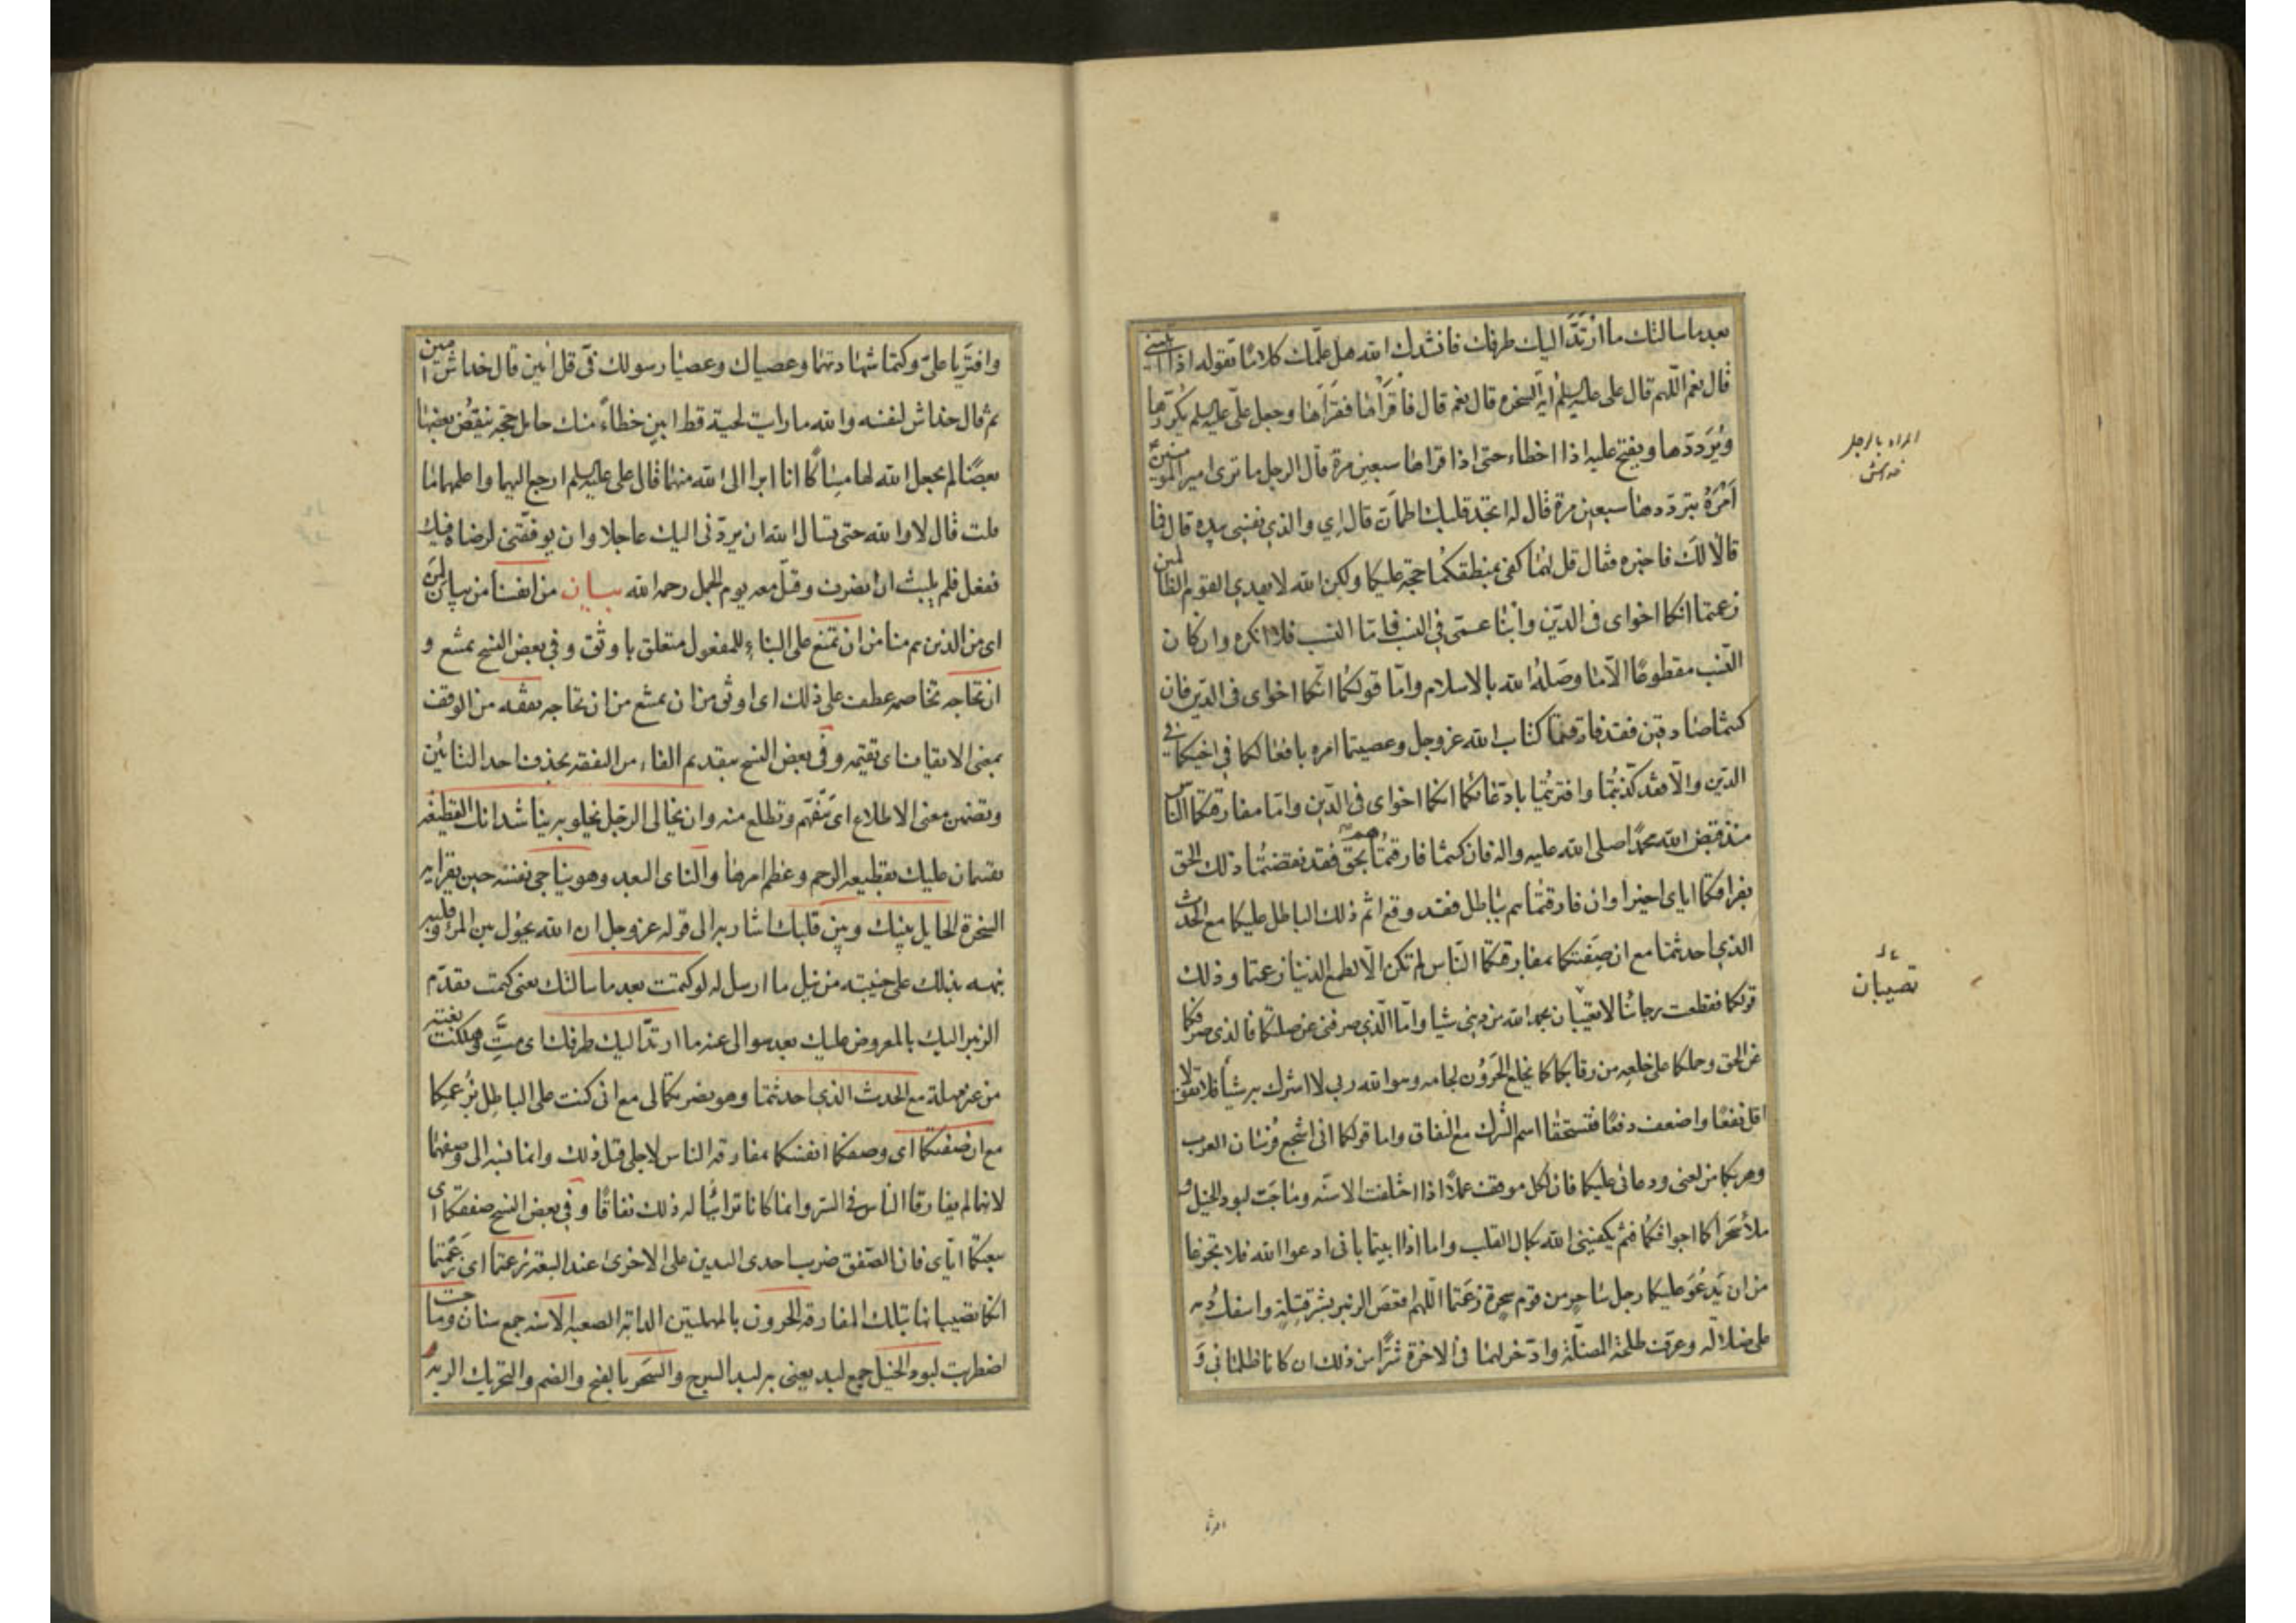 بعد ما سالتك ما ارتدّ اليك طرفك فانشدك الله هل علّمك كلاما تقوله اذا اتيتنى
قال نعم اللّهم قال على عليه السلم اية السخره قال نعم قال فاقراها فقراها وجعل علىّ عليه السلم يكرّرها
ويُردّدها ويفتح عليه اذا اخطاء حتى اذا قراها سبعين مرة قال الرجل ما ترى امير المومنين
اَمْرُهُ بتردّدها سبعين مرة قال له اتجد قلبك اطمأن قال اِي والذي نفسى بيده قال فما
قالا لك فاخبره فقال قل لهما كفى بمنطقكما حجة عليكما ولكن الله لا يهدى القوم الظالمين
زعمتما انكما اخواى فى الدّين وابنا عمى فى النسب فامّا النسب فلا انكره وان كان
النسب مقطوعًا الّا ما وصَلَهُ الله بالاسلام وامّا قولكما انكما اخواى فى الدّين فان
كنتما صادقين فقد فارقتما كتاب الله عزوجل وعصيتما امره بافعالكما فى اخيكما فى
الدّين والّا فقد كذّبتما وافتريتما بادّعائكما انكما اخواى فى الدّين وامّا مفارقتكما النّاس
منذ قبض الله محمّدًا صلى الله عليه واله فان كنتما فارقتماهم بحقّ فقد نقضتما ذلك الحق
بفراقكما اياى اخيرا وان فارقتماهم بباطل فقد وقع اثم ذلك الباطل عليكما مع الحدث
الذي احدثتما مع ان صفتكما بمفارقتكما النّاس لم تكن الّا لطمع الدنيا زعمتما وذلك
قولكما فقطعت رجائنا لا تعيبان بحمد الله من دينى شيا وامّا الّذي صرفنى عن صلتكما فالذى صرفكما
عن الحق وحملكما على خلعه من رقابكما كما يخلع الحَرُوُن لجامه وهو الله ربى لا اشرك به شيأ فلا تقولا
اقل نفعًا واضعف دفعًا فتستحقّا اسم الشرك مع النفاق واما قولكما انى اشجع فرسان العرب
وهربكما من لعنى ودعائى عليكما فان لكل موقف عملًا اذا اختلفت الاسنّه وماجَت لبود الخيل و
ملأ سَحراكما اجوافكما فثم يكفينى الله بكمال القلب واما اذا ابيتما بانى ادعوا الله فلا تجزعا
من ان يَدعُوَ عليكما رجل ساحر من قوم سحرة زعمتما اللّهم اقعص الزبير بشرّ قتلة واسفك دمه
على ضلالة وعرّف طلحة المذلّة وادّخر لهما فى الاخرة شرًّا من ذلك ان كانا ظلمانى وَ
المراد بالرجل
خداش
تعيبان
وافتَريا علىّ وكتما شهادتهما وعصياك وعصيا رسولك فىّ قل امين قال خداش امين
ثم قال خداش لنفسه والله ما رايت لحية قط ابين خطاءً منك حامل حجّة ينقض بعضها
بعضًا لم يجعل الله لها مساكًا انا ابرا الى الله منهما قال على عليه السلم ارجع اليهما واعلمهما ما
قلت قال لا والله حتى تسال الله ان يردّنى اليك عاجلا وان يوفقنى لرضاه فيك
ففعل فلم يلبث ان انصرف وقتل معه يوم الجمل رحمه الله بيان من انفسنا من بيانيّة
اى من الذين هم منا من ان تمتنع على البناء للمفعول متعلق باوثق وفى بعض النسخ يمتنع و
ان تحاجه تخاصمه عطف على ذلك اى اوثق من ان يمتنع من ان تحاجه تقفه من الوقف
بمعنى الايقاف اى تقيمه وفى بعض النسخ بتقديم الفاء من التفقه بحذف احد التائين
وتضمن معنى الاطلاع اى تتفّهم وتطلع منه وان يخالى الرجل يخلو به يناشدانك القطيعة
يقسمان عليك بقطيعه الرحم وعظم امرها والناى البعد وهو يناجى نفسه حين يقرا اية
السخرة الحايل بينك وبين قلبك اشار به الى قوله عزوجل ان الله يحول بين المرء وقلبه
نبهه بذلك على خيبته من نيل ما ارسل له لو كتمت بعد ما سالتك يعنى كتمت تقدّم
الزبير اليك بالمعروض عليك بعد سوالى عنه ما ارتدّ اليك طرفك اى متَّ وهلكت بغتة
من غير مهلة مع الحدث الذي احدثتما وهو نصرتكما لى مع انى كنت على الباطل بزعمكما
مع ان صفتكما اى وصفكما انفسكما بمفارقه الناس لاجلى قبل ذلك وانما نسبه الى وصفهما
لانهما لم يفارقا الناس فى السّر وانما كانا ترائيا له ذلك نفاقًا وفى بعض النسخ صفقتكما اى
بيعتكما اياى فان الصّفق ضرب احدى اليدين على الاخرى عند البيعة زعمتما اى زعمتما
انكما تصيبانها بتلك المفارقه الحرون بالمهملتين الدابه الصعبه الاسنه جمع سنان وماجت
اضطربت لبود الخيل جمع لبد يعنى به لبد السرج والسَحَر بالفتح والضم والتحريك الريه